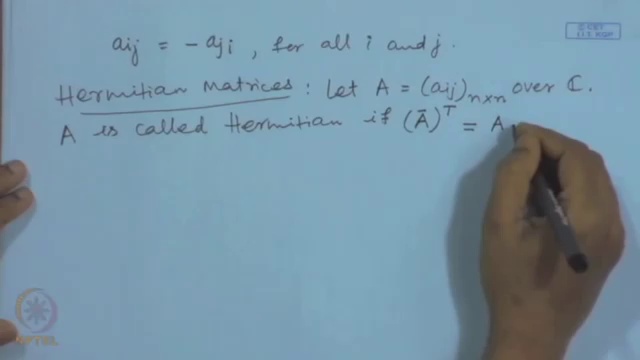 aij = -aji, for all i and j.
Hermitian Matrices : Let A = (aij)n×n over ℂ.
A is called Hermitian if (Ā)ᵀ = A
NPTEL